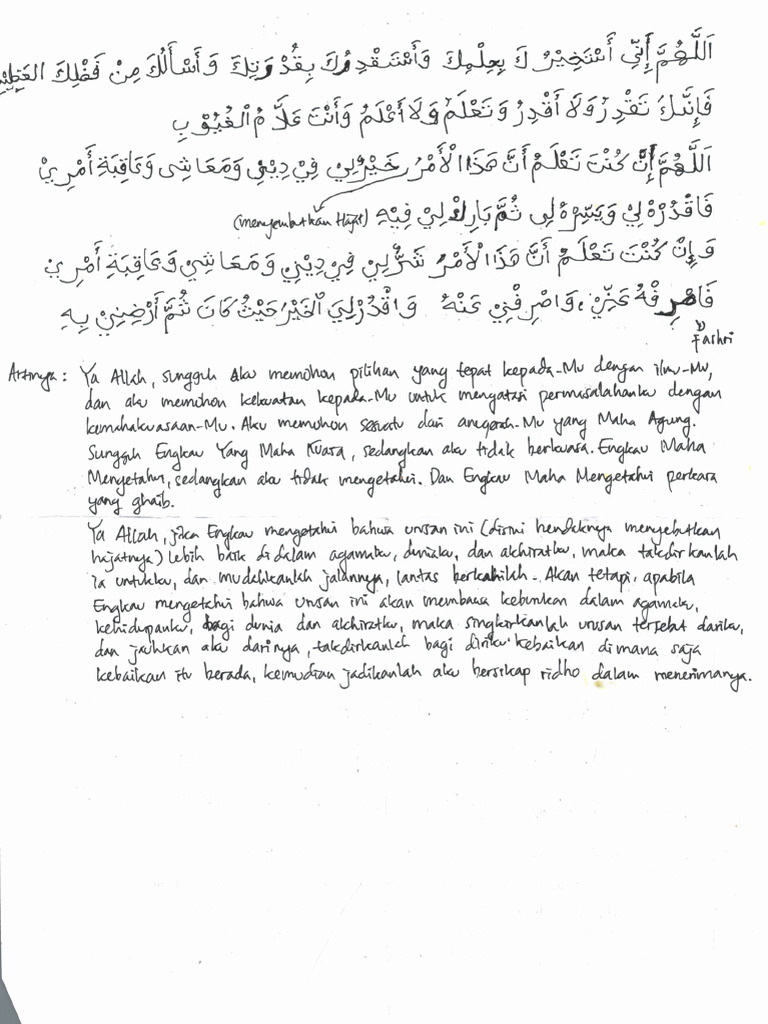 اَللَّهُمَّ إِنِّي أَسْتَخِيْرُكَ بِعِلْمِكَ وَأَسْتَقْدِرُكَ بِقُدْرَتِكَ وَأَسْأَلُكَ مِنْ فَضْلِكَ العَظِيْمِ
فَإِنَّكَ تَقْدِرُ وَلَا أَقْدِرُ وَتَعْلَمُ وَلَا أَعْلَمُ وَأَنْتَ عَلَّامُ الْغُيُوْبِ
اَللَّهُمَّ إِنْ كُنْتَ تَعْلَمُ أَنَّ هَذَا الْأَمْرُ خَيْرٌ لِي فِيْ دِيْنِيْ وَمَعَاشِى وَعَاقِبَةِ أَمْرِيْ
فَاقْدُرْهُ لِيْ وَيَسِّرْهُ لِى ثُمَّ بَارِكْ لِيْ فِيْهِ (menyebutkan Hajat)
وَإِنْ كُنْتَ تَعْلَمُ أَنَّ هَذَا الْأَمْرُ شَرٌّ لِي فِيْ دِيْنِيْ وَمَعَاشِيْ وَعَاقِبَةِ أَمْرِيْ
فَاصْرِفْهُ عَنِّيْ، وَاصْرِفْنِيْ عَنْهُ وَاقْدُرْ لِيَ الْخَيْرَ حَيْثُ كَانَ ثُمَّ أَرْضِنِيْ بِهِ
Fashri
Artinya : Ya Allah, sungguh aku memohon pilihan yang tepat kepada-Mu dengan ilmu-Mu,
dan aku memohon kekuatan kepada-Mu untuk mengatasi permasalahanku dengan
kemahakuasaan-Mu. Aku memohon sesuatu dari anugerah-Mu yang Maha Agung.
Sungguh Engkau Yang Maha Kuasa, sedangkan aku tidak berkuasa. Engkau Maha
Mengetahui, sedangkan aku tidak mengetahui. Dan Engkau Maha Mengetahui perkara
yang ghaib.
Ya Allah, jika Engkau mengetahui bahwa urusan ini (disini hendaknya menyebutkan
hajatnya) lebih baik didalam agamaku, duniaku, dan akhiratku, maka takdirkanlah
ia untukku, dan mudahkanlah jalannya, lantas berkahilah. Akan tetapi, apabila
Engkau mengetahui bahwa urusan ini akan membawa keburukan dalam agamaku,
kehidupanku, bagi dunia dan akhiratku, maka singkirkanlah urusan tersebut dariku,
dan jauhkan aku darinya, takdirkanlah bagi diriku kebaikan dimana saja
kebaikan itu berada, kemudian jadikanlah aku bersikap ridho dalam menerimanya.